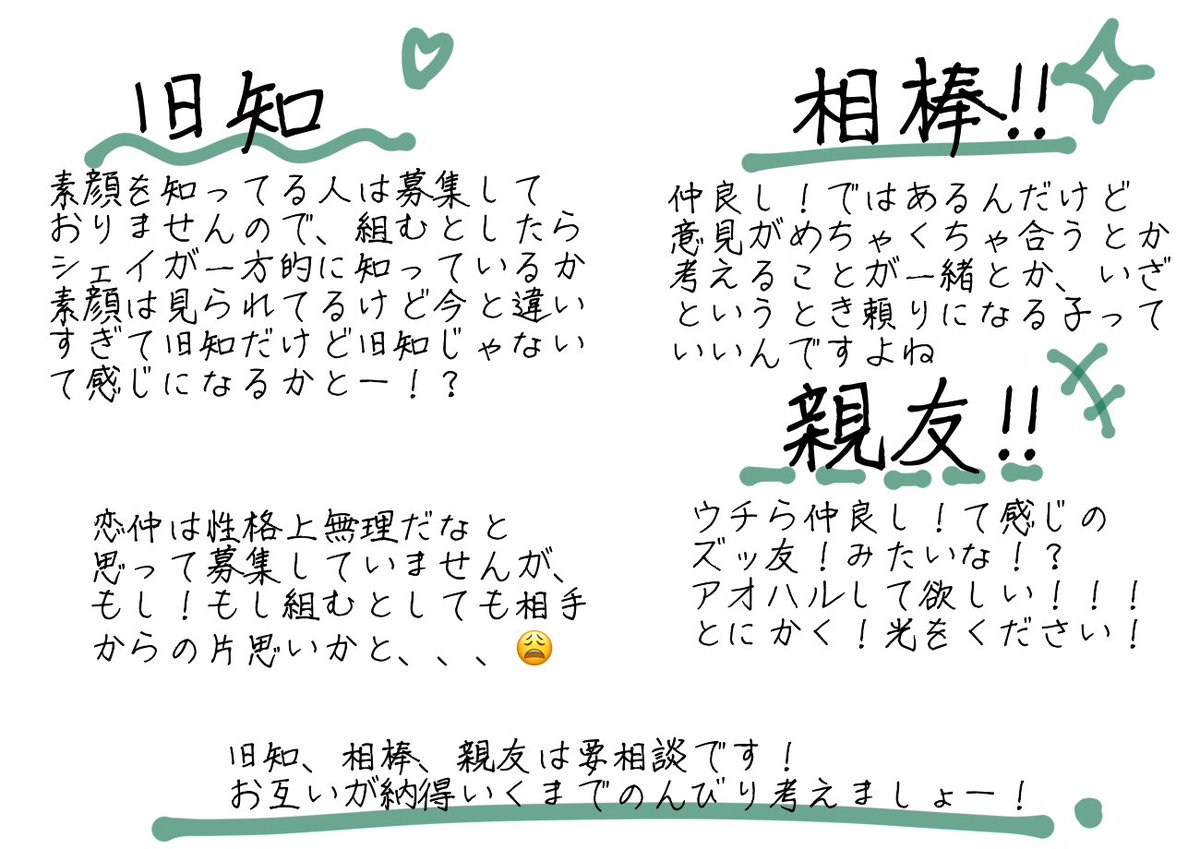 旧知
素顔を知ってる人は募集して
おりませんので、組むとしたら
シェイが一方的に知っているか
素顔は見られてるけど今と違い
すぎて旧知だけど旧知じゃない
て感じになるかとー！？
恋仲は性格上無理だなと
思って募集していませんが、
もし！もし組むとしても相手
からの片思いかと、、、😩
相棒!!
仲良し！ではあるんだけど
意見がめちゃくちゃ合うとか
考えることが一緒とか、いざ
というとき頼りになる子って
いいんですよね
親友!!
ウチら仲良し！て感じの
ズッ友！みたいな！？
アオハルして欲しい！！！
とにかく！光をください！
旧知、相棒、親友は要相談です！
お互いが納得いくまでのんびり考えましょー！